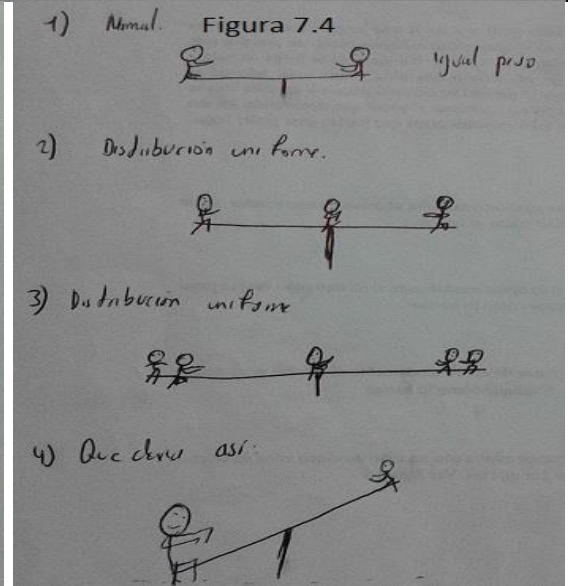 1) Normal. Figura 7.4
Igual peso
2) Distribución uniforme.
3) Distribución uniforme
4) así.